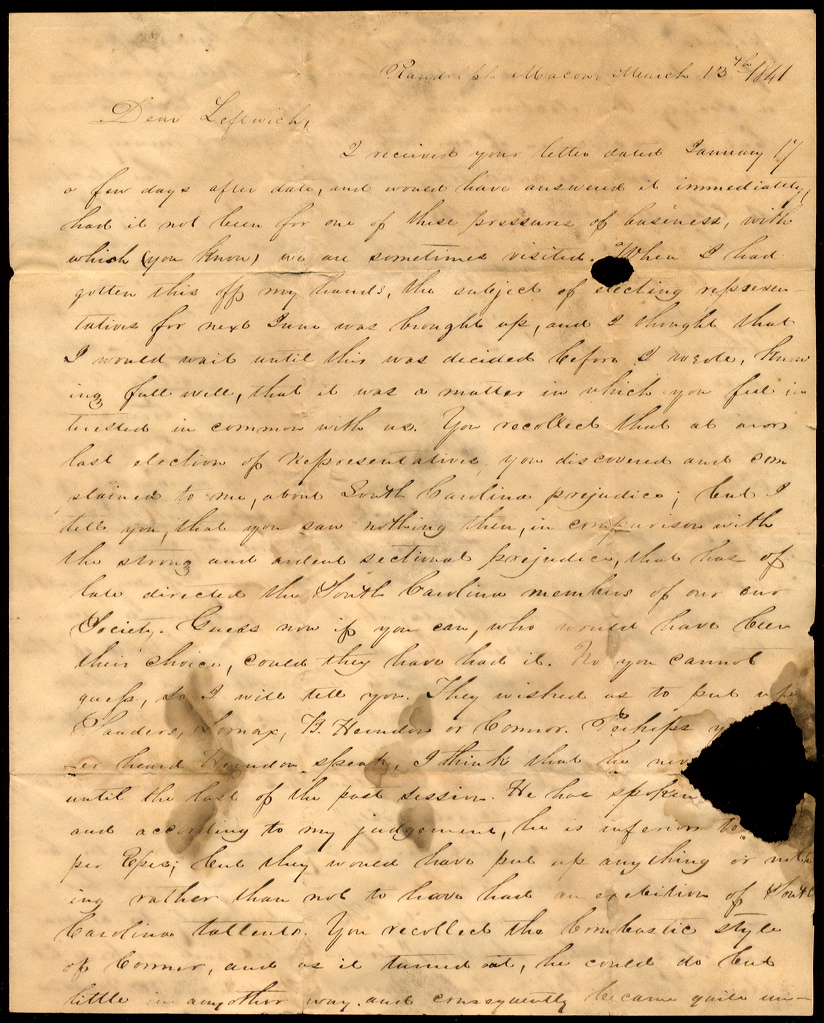 Randolph Macon March 13th 1841
Dear Leftwich,
I received your letter dated January 17
a few days after date, and would have answered it immediately,
had it not been for one of those pressures of business, with
which (you know) we are sometimes visited. When I had
gotten this off my hands, the subject of electing represen-
tatives for next June was brought up, and I thought that
I would wait until this was decided before I wrote, know
ing full well, that it was a matter in which you feel in
terested in common with us. You recollect that at our
last election of Representatives, you discovered and com
plained to me, about South Carolina prejudice; but I
tell you, that you saw nothing then, in comparison with
the strong and ardent sectional prejudice, that has of
late directed the South Carolina members of our our
Society. Guess now if you can, who would have been
their choice, could they have had it. No you cannot
guess, so I will tell you. They wished us to put up
Sanders, Lomax, Herndon or Connor. Perhaps
er heard Herndon speak, I think that he nev
until the last of the past session. He has spoken
and according to my judgement, he is inferior to
per Epes; but they would have put up anything or noth
ing rather than not to have had an exebition of South
Carolina tallents. You recollect the bombastic style
of Connor, and as it turned out, he could do but
little in anyother way, and consequently became quite un-